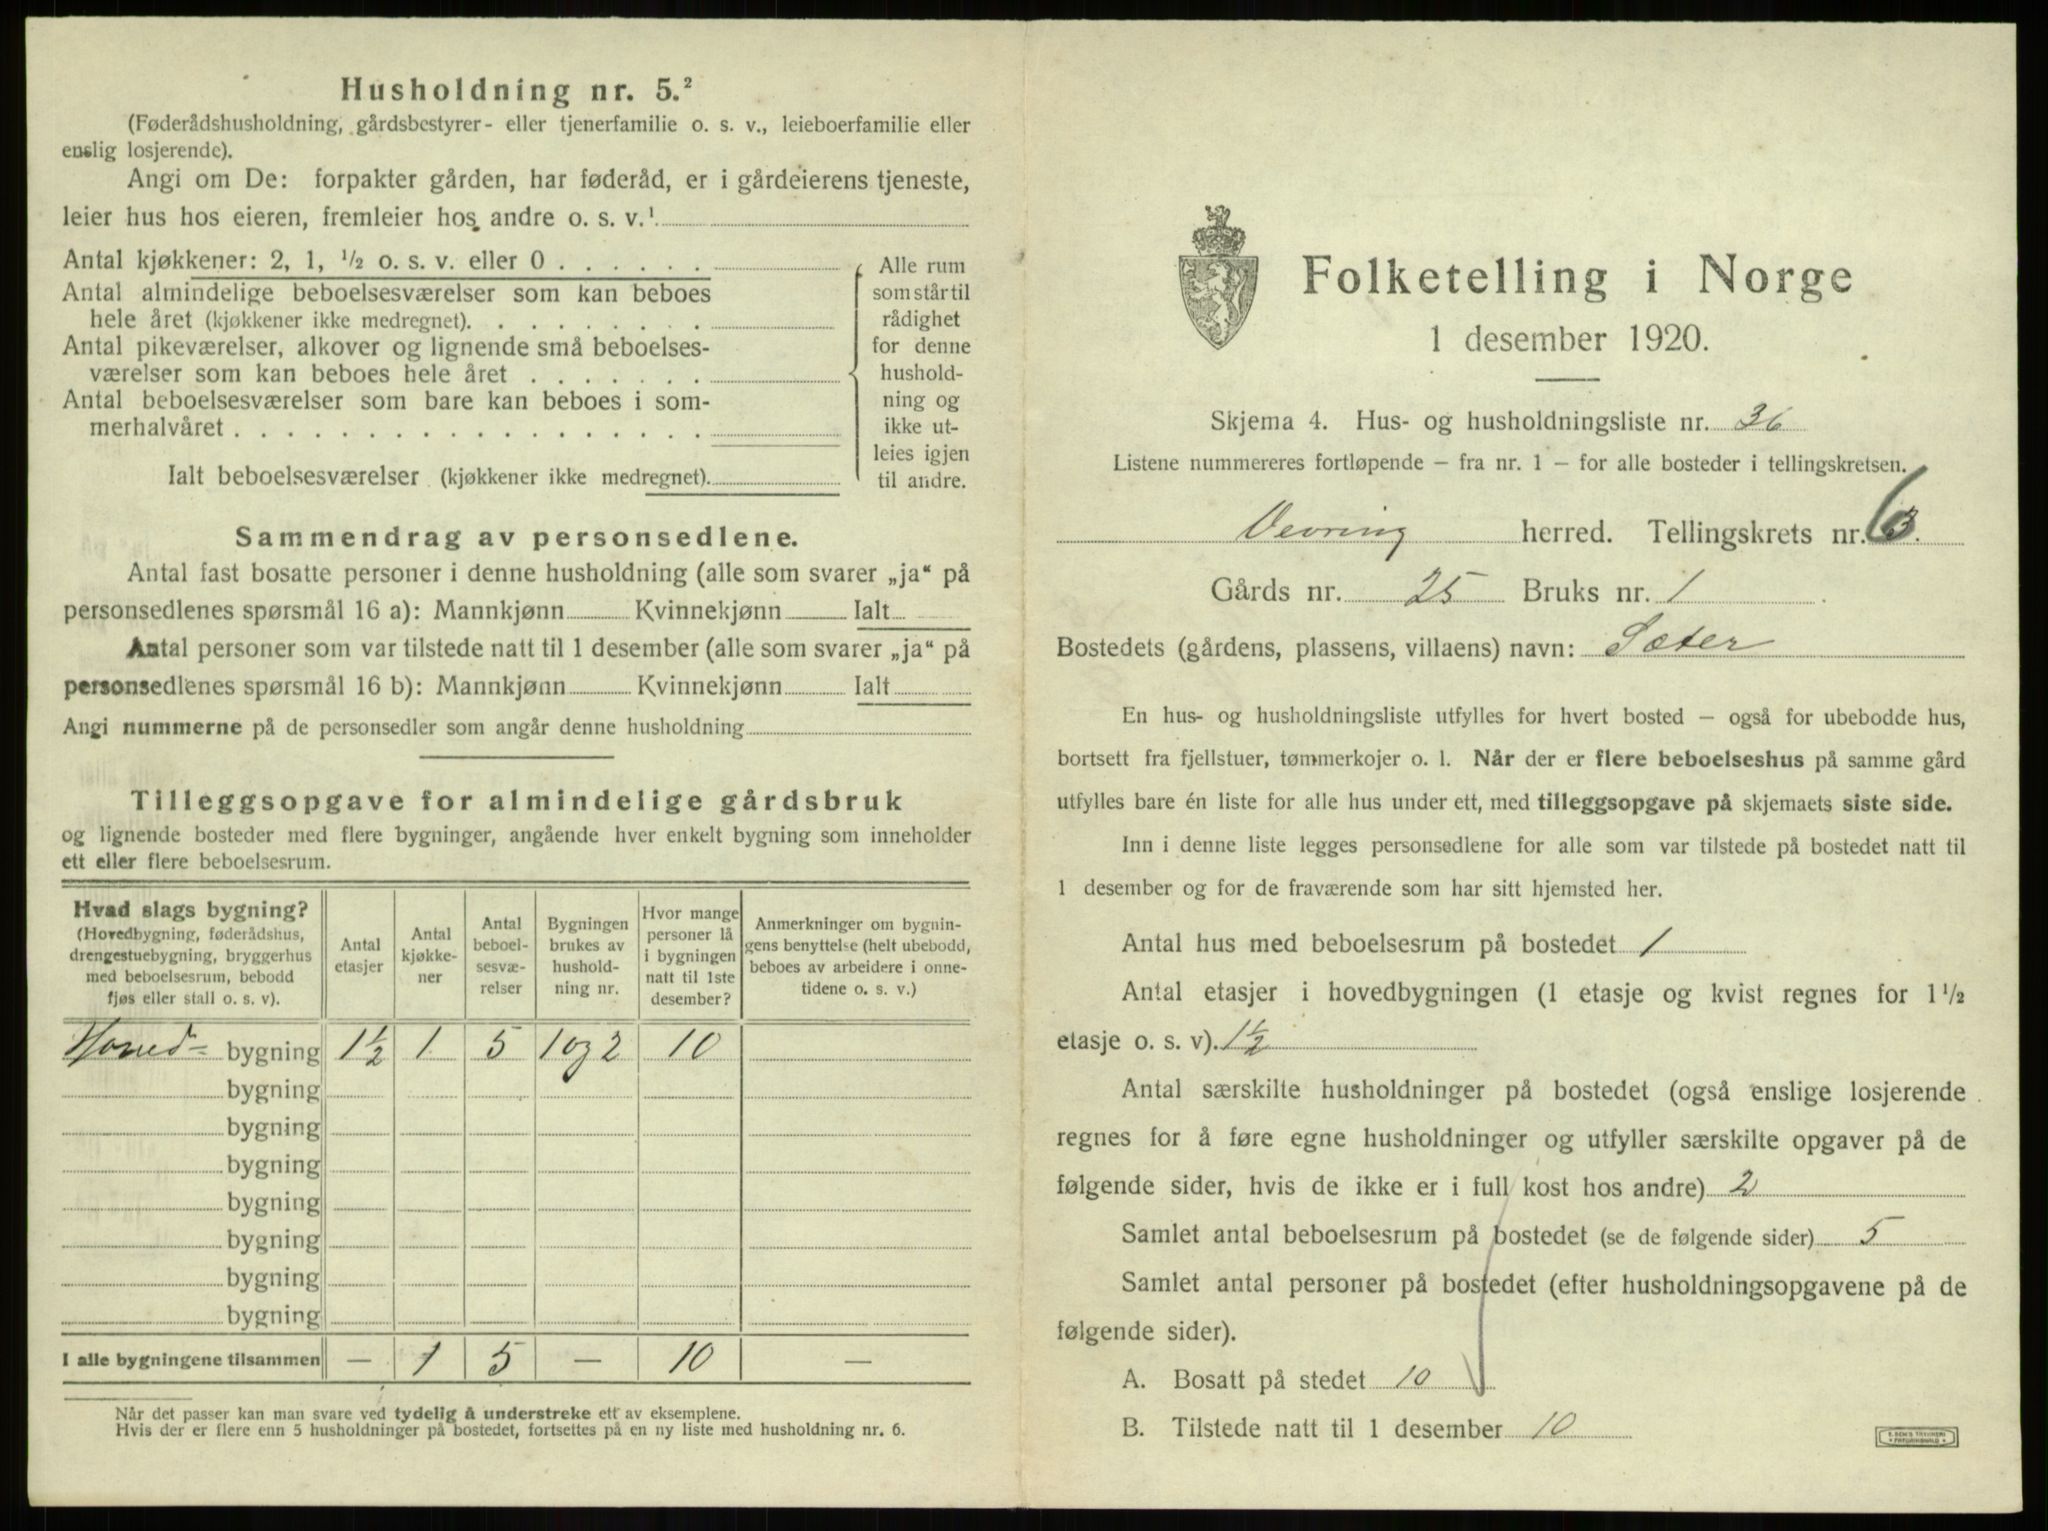 Husholdning nr. 5.²
(Føderådshusholdning, gårdsbestyrer- eller tjenerfamilie o. s. v., leieboerfamilie eller
enslig losjerende).
Angi om De: forpakter gården, har føderåd, er i gårdeierens tjeneste,
leier hus hos eieren, fremleier hos andre o. s. v.¹
Antal kjøkkener: 2, 1, ½ o. s. v. eller 0 . . . . . .
Antal almindelige beboelsesværelser som kan beboes
hele året (kjøkkener ikke medregnet). . . . . . . . .
Antal pikeværelser, alkover og lignende små beboelses-
værelser som kan beboes hele året . . . . . . .
Antal beboelsesværelser som bare kan beboes i som-
merhalvåret . . . . . . . . . . . . . . . . . .
Ialt beboelsesværelser (kjøkkener ikke medregnet).
Alle rum
som står til
rådighet
for denne
hushold-
ning og
ikke ut-
leies igjen
til andre.
Sammendrag av personsedlene.
Antal fast bosatte personer i denne husholdning (alle som svarer „ja“ på
personsedlenes spørsmål 16 a): Mannkjønn Kvinnekjønn Ialt
Antal personer som var tilstede natt til 1 desember (alle som svarer „ja“ på
personsedlenes spørsmål 16 b): Mannkjønn Kvinnekjønn Ialt
Angi nummerne på de personsedler som angår denne husholdning
Tilleggsopgave for almindelige gårdsbruk
og lignende bosteder med flere bygninger, angående hver enkelt bygning som inneholder
ett eller flere beboelsesrum.
Hvad slags bygning?
(Hovedbygning, føderådshus,
drengestuebygning, bryggerhus
med beboelsesrum, bebodd
fjøs eller stall o. s. v).
Antal
etasjer
Antal
kjøkke-
ner
Antal
beboel-
sesvæ-
relser
Bygningen
brukes av
hushold-
ning nr.
Hvor mange
personer lå
i bygningen
natt til 1ste
desember?
Anmerkninger om bygnin-
gens benyttelse (helt ubebodd,
beboes av arbeidere i onne-
tidene o. s. v.)
Hoved- bygning 1½ 1 5 1 og 2 10
bygning
bygning
bygning
bygning
bygning
bygning
bygning
I alle bygningene tilsammen — 1 5 — 10 —
Når det passer kan man svare ved tydelig å understreke ett av eksemplene.
Hvis der er flere enn 5 husholdninger på bostedet, fortsettes på en ny liste med husholdning nr. 6.
Folketelling i Norge
1 desember 1920.
Skjema 4. Hus- og husholdningsliste nr. 36
Listene nummereres fortløpende – fra nr. 1 – for alle bosteder i tellingskretsen.
Vevring herred. Tellingskrets nr. 6
Gårds nr. 25 Bruks nr. 1
Bostedets (gårdens, plassens, villaens) navn: Sæter
En hus- og husholdningsliste utfylles for hvert bosted – også for ubebodde hus,
bortsett fra fjellstuer, tømmerkojer o. l. Når der er flere beboelseshus på samme gård
utfylles bare én liste for alle hus under ett, med tilleggsopgave på skjemaets siste side.
Inn i denne liste legges personsedlene for alle som var tilstede på bostedet natt til
1 desember og for de fraværende som har sitt hjemsted her.
Antal hus med beboelsesrum på bostedet 1
Antal etasjer i hovedbygningen (1 etasje og kvist regnes for 1½
etasje o. s. v). 1½
Antal særskilte husholdninger på bostedet (også enslige losjerende
regnes for å føre egne husholdninger og utfyller særskilte opgaver på de
følgende sider, hvis de ikke er i full kost hos andre) 2
Samlet antal beboelsesrum på bostedet (se de følgende sider) 5
Samlet antal personer på bostedet (efter husholdningsopgavene på de
følgende sider).
A. Bosatt på stedet 10
B. Tilstede natt til 1 desember 10